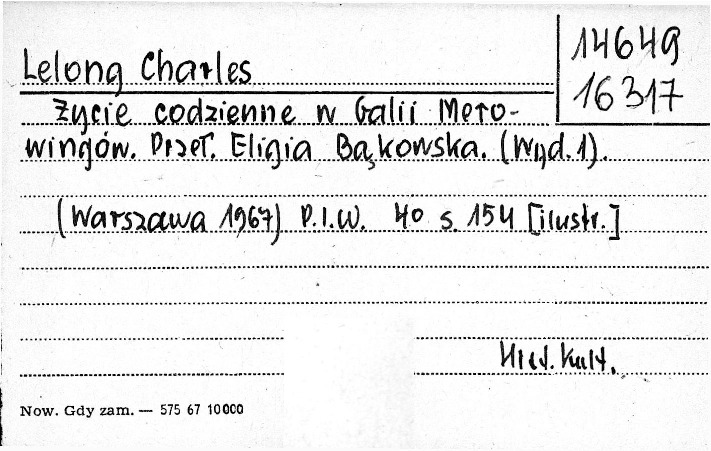 14649
16317
Lelong Charles
Życie codzienne w Galii Mero-
wingów. Przeł. Eligia Bąkowska. (Wyd. 1).
(Warszawa 1967) P.I.W. 4o s. 154 [ilustr.]
Hist. Kult.
Now. Gdy zam. — 575 67 10000